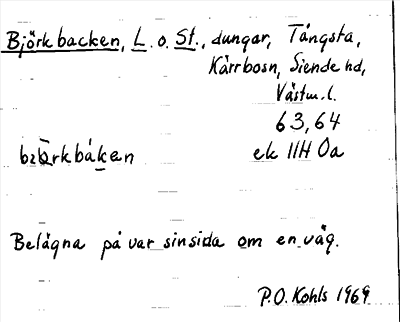 Björkbacken, L. o. St., dungar, Tångsta,
Kärrbosn, Siende hd,
Västm. l.
63,64
bzörkbáken ek 11H 0a
Belägna på var sin sida om en väg.
P.O. Kohls 1969